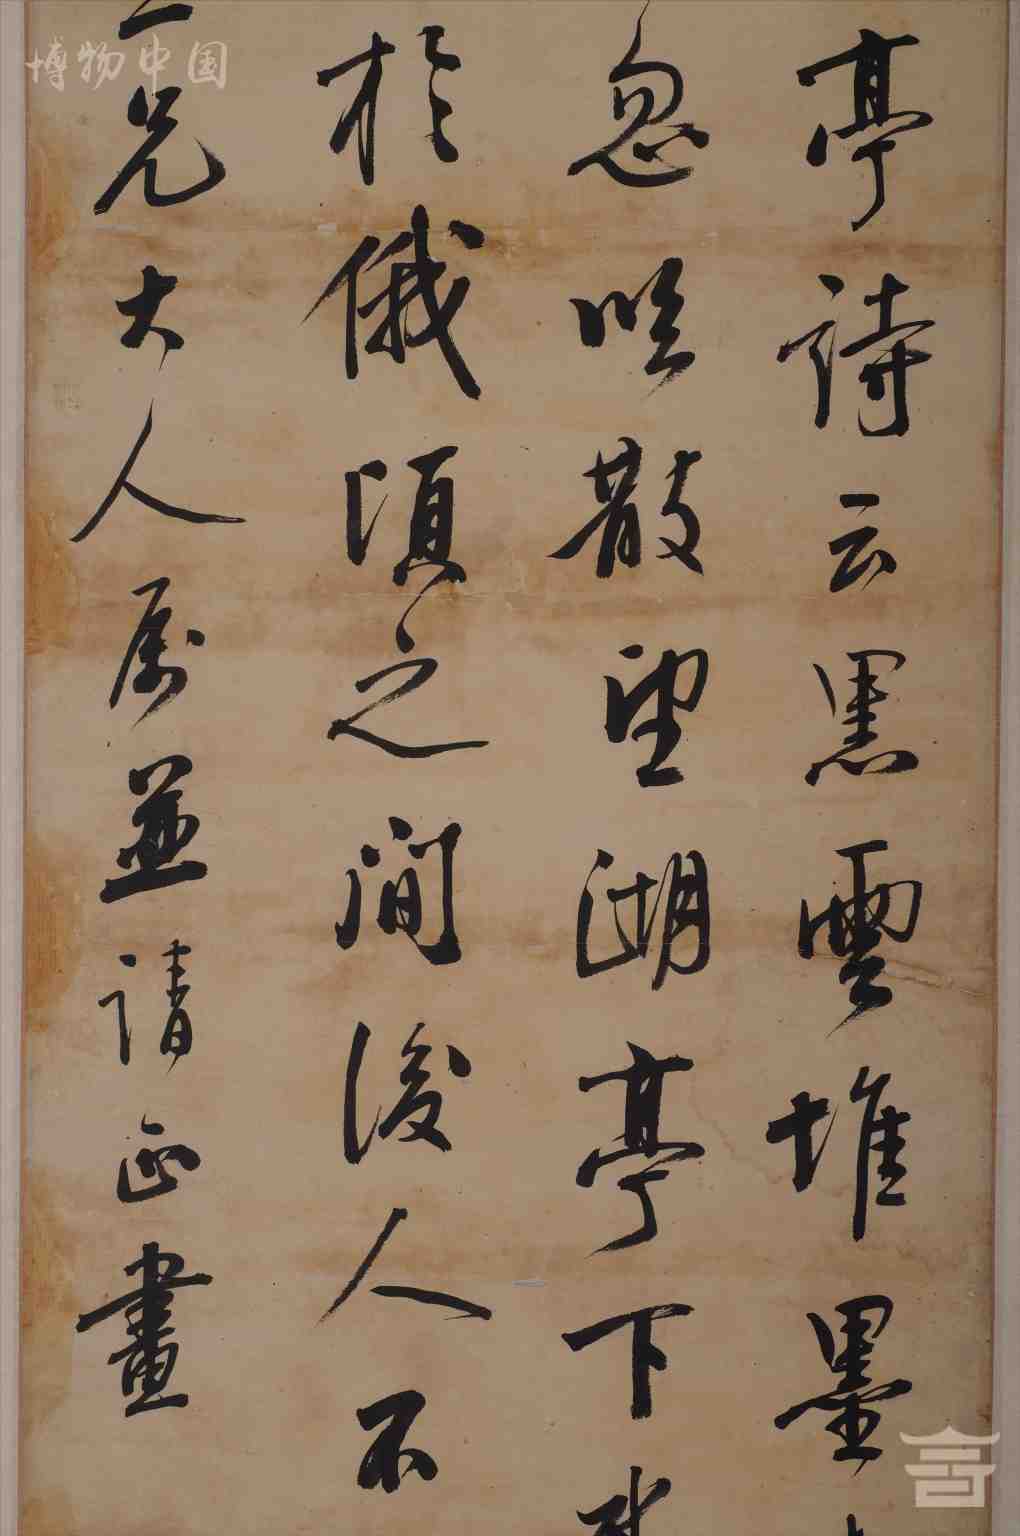 亭詩云黑雲堆墨
忽吹散望湖亭下
於俄頃之間後人不
兄大人属並請正畫
博物中国